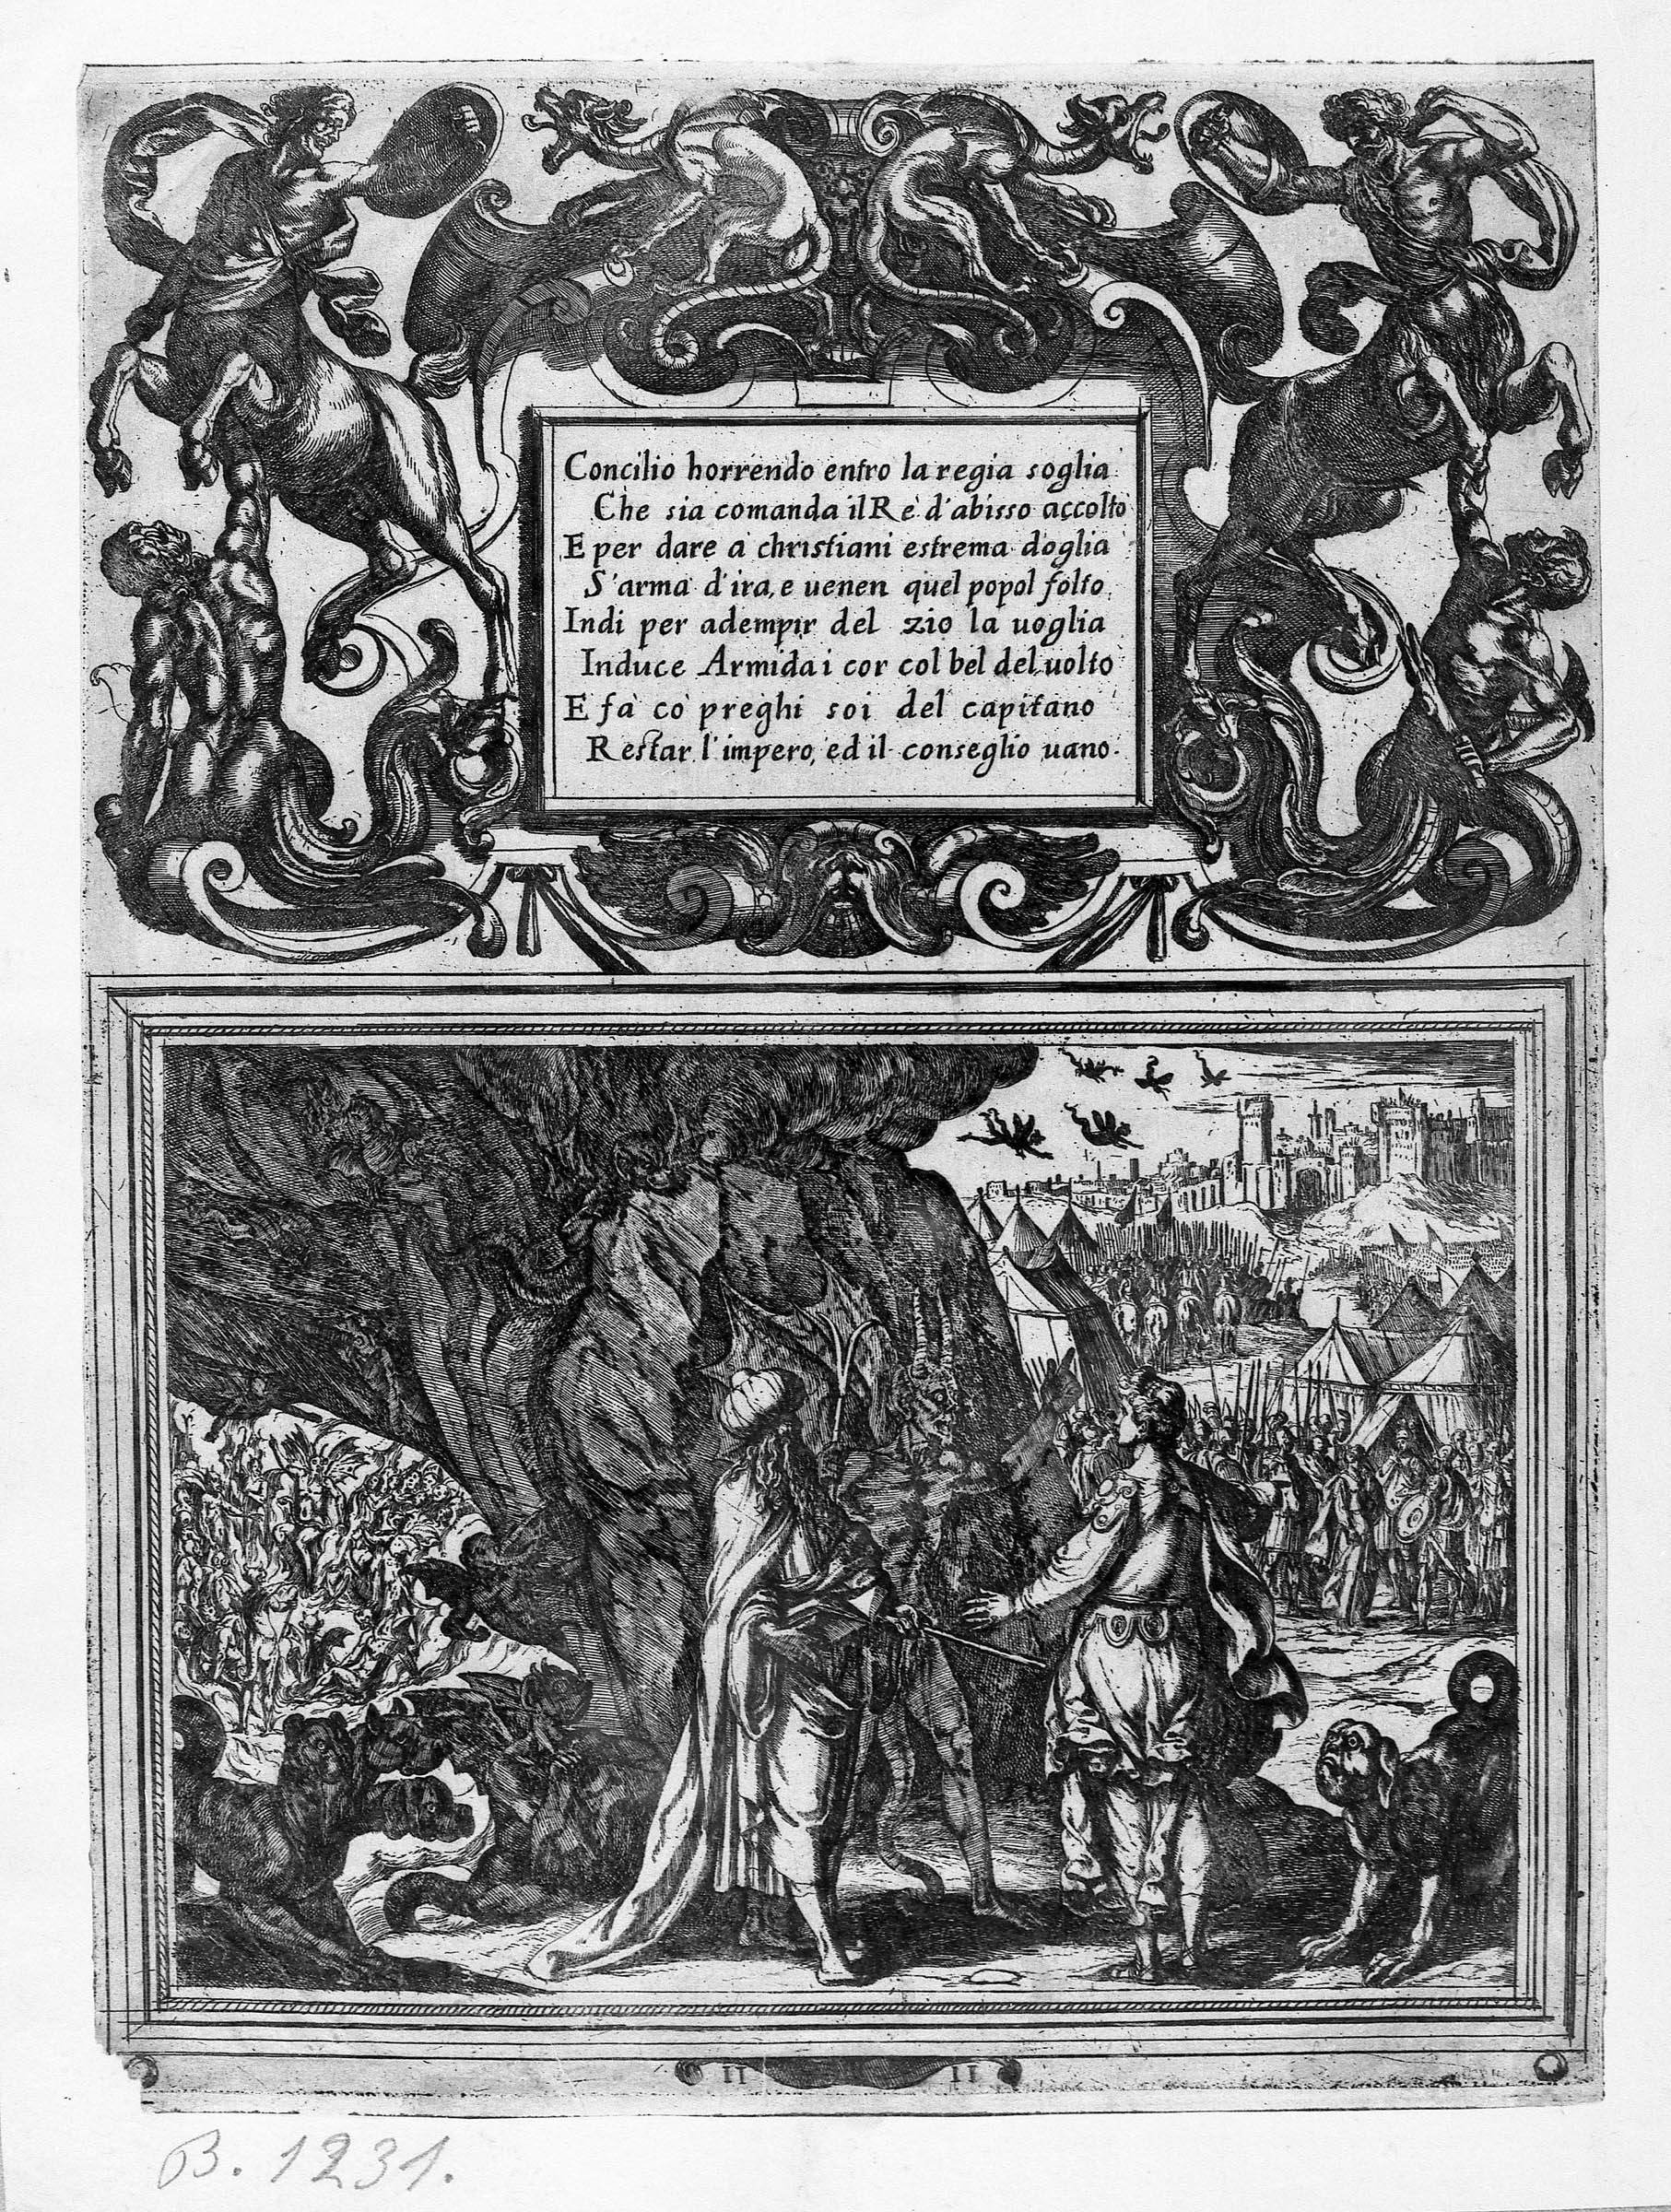 Concilio horrendo entro la regia soglia
Che sia comanda il Rè d'abisso accolto
E per dare à christiani estrema doglia
S'arma d'ira, e uenen quel popol folto
Indi per adempir del zio la uoglia
Induce Armida i cor col bel del uolto
E fà co preghi soi del capitano
Restar l'impero, ed il conseglio uano.
II II
B. 1231.